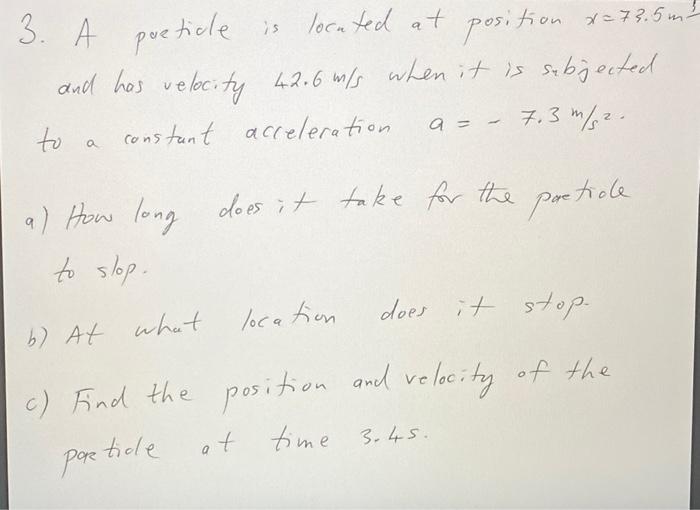 3. A particle is located at position x=73.5m
and has velocity 42.6 m/s when it is subjected
to a constant acceleration a = - 7.3 m/s².
a) How long does it take for the particle
to stop.
b) At what location does it stop.
c) Find the position and velocity of the
particle at time 3.4s.